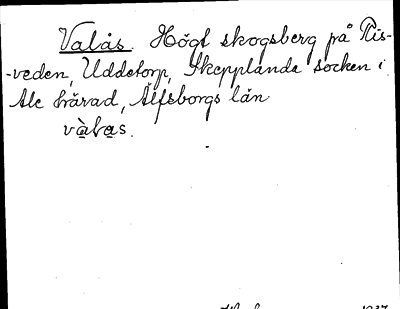 Valås. Högt skogsberg på Ris-
-veden, Uddetorp, Skepplanda socken i
Ale härad, Älfsborgs län